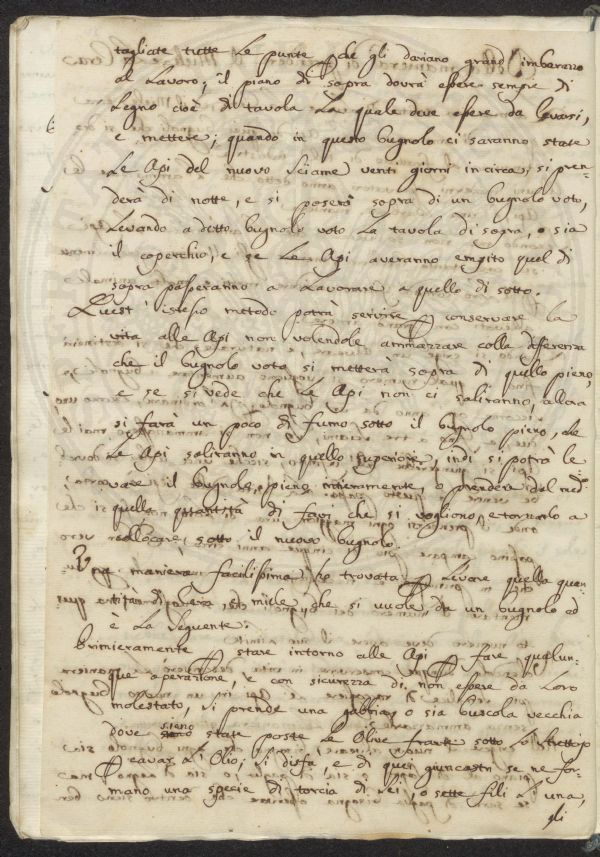 tagliate tutte le punte, che gli dariano grand'imbarazzo
al Lavoro; il piano di sopra dovrà essere sempre di
Legno cioè di tavola La quale deve essere da levarsi,
e mettere; quando in questo bugnolo ci saranno state
Le Api del nuovo Sciame venti giorni in circa, si pren-
derà di notte, e si poserà sopra di un bugnolo voto,
Levando a ditto bugnolo voto La tavola di sopra, o sia
il coperchio, e se Le Api averanno empito quel di
sopra passeranno a Lavorare a quello di sotto.
Quest' istesso metodo potrà servire p conservare la
vita alle Api non volendole ammazzare colla differenza
che il bugnolo voto si metterà sopra di quello pieno,
e se si vede che Le Api non ci saliranno, allora
si farà un poco di fumo sotto il bugnolo pieno, che
Le Api saliranno in quello superiore, indi si potrà le
vare il bugnolo pieno intieramente, o prendere dal med.o
quella quantità di favi che si vogliono, e tornarlo a
collocare sotto il nuovo bugnolo.
Una maniera facilissima ho trovata p Levare quella quan-
tità di cera, e miele, che si vuole, da un bugnolo ed
è La seguente.
Primieramente p stare intorno alle Api p fare qualun-
que operazione, e con sicurezza di non essere da Loro
molestato, si prende una gabbia, o sia buscola vecchia
dove sieno state poste Le Olive sotto Lo strettojo
p cavar L'Olio, si disfà, e di quei giuncastri se ne for-
mano una specie di torcia di sei, o sette fili L'una,
gli